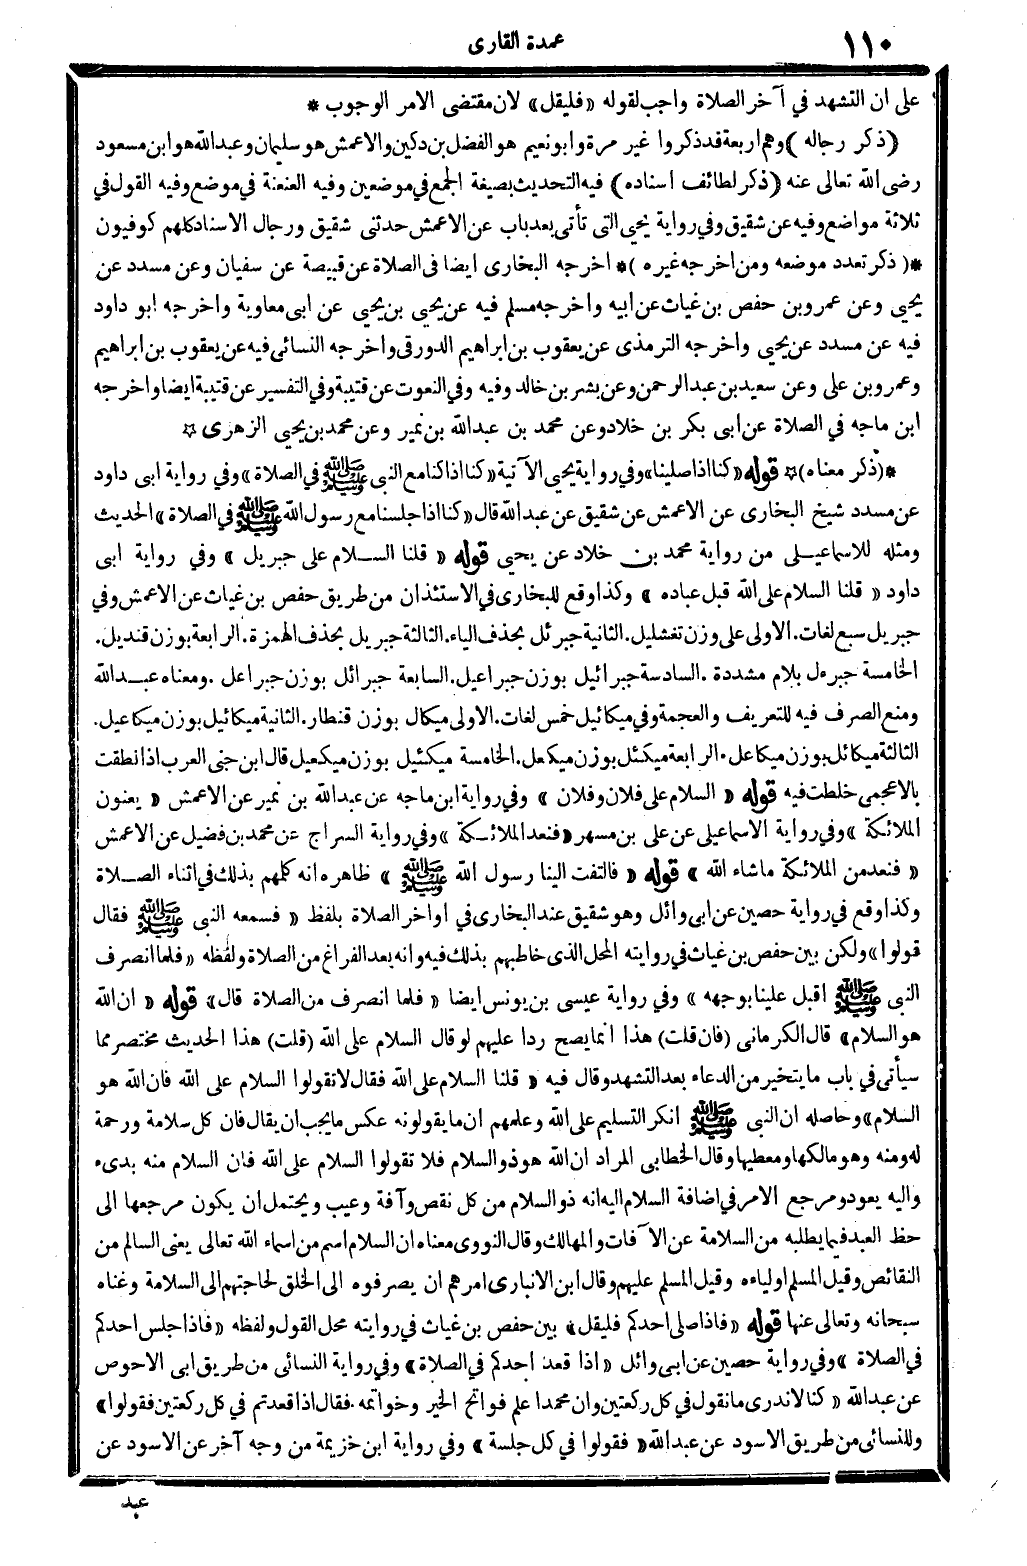 ١١٠
عمدة القارى
على ان التشهد في آخر الصلاة واجب لقوله «فليقل» لان مقتضى الامر الوجوب *
(ذكر رجاله) وهم اربعة قد ذكروا غير مرة وابو نعيم هو الفضل بن دكين والاعمش هو سليمان وعبد الله هو ابن مسعود
رضى الله تعالى عنه (ذكر لطائف اسناده) فيه التحديث بصيغة الجمع في موضعين وفيه العنعنة في موضع وفيه القول في
ثلاثة مواضع وفيه عن شقيق وفي رواية يحيى التى تأتى بعد باب عن الاعمش حدثنى شقيق ورجال الاسناد كلهم كوفيون
*(ذكر تعدد موضعه ومن اخرجه غيره)* اخرجه البخارى ايضا فى الصلاة عن قبيصة عن سفيان وعن مسدد عن
يحيى وعن عمرو بن حفص بن غياث عن ابيه واخرجه مسلم فيه عن يحيى بن يحيى عن ابى معاوية واخرجه ابو داود
فيه عن مسدد عن يحيى واخرجه الترمذى عن يعقوب بن ابراهيم الدورقى واخرجه النسائى فيه عن يعقوب بن ابراهيم
وعمرو بن على وعن سعيد بن عبد الرحمن وعن بشر بن خالد وفيه وفي النعوت عن قتيبة وفي التفسير عن قتيبة ايضا واخرجه
ابن ماجه في الصلاة عن ابى بكر بن خلاد وعن محمد بن عبد الله بن نمير وعن محمد بن يحيى الزهرى ☆
*(ذكر معناه)☆ قوله «كنا اذا صلينا» وفي رواية يحيى الآتية «كنا اذا كنا مع النبى ﷺ في الصلاة» وفي رواية ابى داود
عن مسدد شيخ البخارى عن الاعمش عن شقيق عن عبد الله قال «كنا اذا جلسنا مع رسول الله ﷺ في الصلاة» الحديث
ومثله للاسماعيلى من رواية محمد بن خلاد عن يحيى قوله «قلنا السلام على جبريل» وفي رواية ابى
داود «قلنا السلام على الله قبل عباده» وكذا وقع للبخارى في الاستئذان من طريق حفص بن غياث عن الاعمش وفي
جبريل سبع لغات. الاولى على وزن تغشليل. الثانية جبرئل بحذف الياء. الثالثة جبريل بحذف الهمزة. الرابعة بوزن قنديل.
الخامسة جبرءل بلام مشددة. السادسة جبرائيل بوزن جبراعيل. السابعة جبرائل بوزن جبراعل. ومعناه عبد الله
ومنع الصرف فيه للتعريف والعجمة وفي ميكائيل خمس لغات. الاولى ميكال بوزن قنطار. الثانية ميكائيل بوزن ميكاعيل.
الثالثة ميكائل بوزن ميكاعل. الرابعة ميكئل بوزن ميكعل. الخامسة ميكئيل بوزن ميكعيل قال ابن جنى العرب اذا نطقت
بالاعجمى خلطت فيه قوله «السلام على فلان وفلان» وفي رواية ابن ماجه عن عبد الله بن نمير عن الاعمش «يعنون
الملائكة» وفي رواية الاسماعيلى عن على بن مسهر «فنعد الملائكة» وفي رواية السراج عن محمد بن فضيل عن الاعمش
«فنعد من الملائكة ماشاء الله» قوله «فالتفت الينا رسول الله ﷺ» ظاهره انه كلهم بذلك في اثناء الصلاة
وكذا وقع في رواية حصين عن ابى وائل وهو شقيق عند البخارى في اواخر الصلاة بلفظ «فسمعه النبى ﷺ فقال
قولوا» ولكن بين حفص بن غياث في روايته المحل الذى خاطبهم بذلك فيه وانه بعد الفراغ من الصلاة ولفظه «فلما انصرف
النبى ﷺ اقبل علينا بوجهه» وفي رواية عيسى بن يونس ايضا «فلما انصرف من الصلاة قال» قوله «ان الله
هو السلام» قال الكرمانى (فان قلت) هذا انما يصح ردا عليهم لو قال السلام على الله (قلت) هذا الحديث مختصر مما
سيأتى في باب ما يتخير من الدعاء بعد التشهد وقال فيه «قلنا السلام على الله فقال لا تقولوا السلام على الله فان الله هو
السلام» وحاصله ان النبى ﷺ انكر التسليم على الله وعلمهم ان ما يقولونه عكس ما يجب ان يقال فان كل سلامة ورحمة
له ومنه وهو مالكها ومعطيها وقال الخطابى المراد ان الله هو ذو السلام فلا تقولوا السلام على الله فان السلام منه بدىء
واليه يعود ومرجع الامر في اضافة السلام اليه انه ذو السلام من كل نقص وآفة وعيب ويحتمل ان يكون مرجعها الى
حظ العبد فيما يطلبه من السلامة عن الآفات والمهالك وقال النووى معناه ان السلام اسم من اسماء الله تعالى يعنى السالم من
النقائص وقيل المسلم اولياءه وقيل المسلم عليهم وقال ابن الانبارى امرهم ان يصرفوه الى الخلق لحاجتهم الى السلامة وغناه
سبحانه وتعالى عنها قوله «فاذا صلى احدكم فليقل» بين حفص بن غياث في روايته محل القول ولفظه «فاذا جلس احدكم
في الصلاة» وفي رواية حصين عن ابى وائل «اذا قعد احدكم في الصلاة» وفي رواية النسائى من طريق ابى الاحوص
عن عبد الله «كنا لاندرى ما نقول في كل ركعتين وان محمدا علم فواتح الخير وخواتمه. فقال اذا قعدتم في كل ركعتين فقولوا»
وللنسائى من طريق الاسود عن عبد الله «فقولوا في كل جلسة» وفي رواية ابن خزيمة من وجه آخر عن الاسود عن
عبد